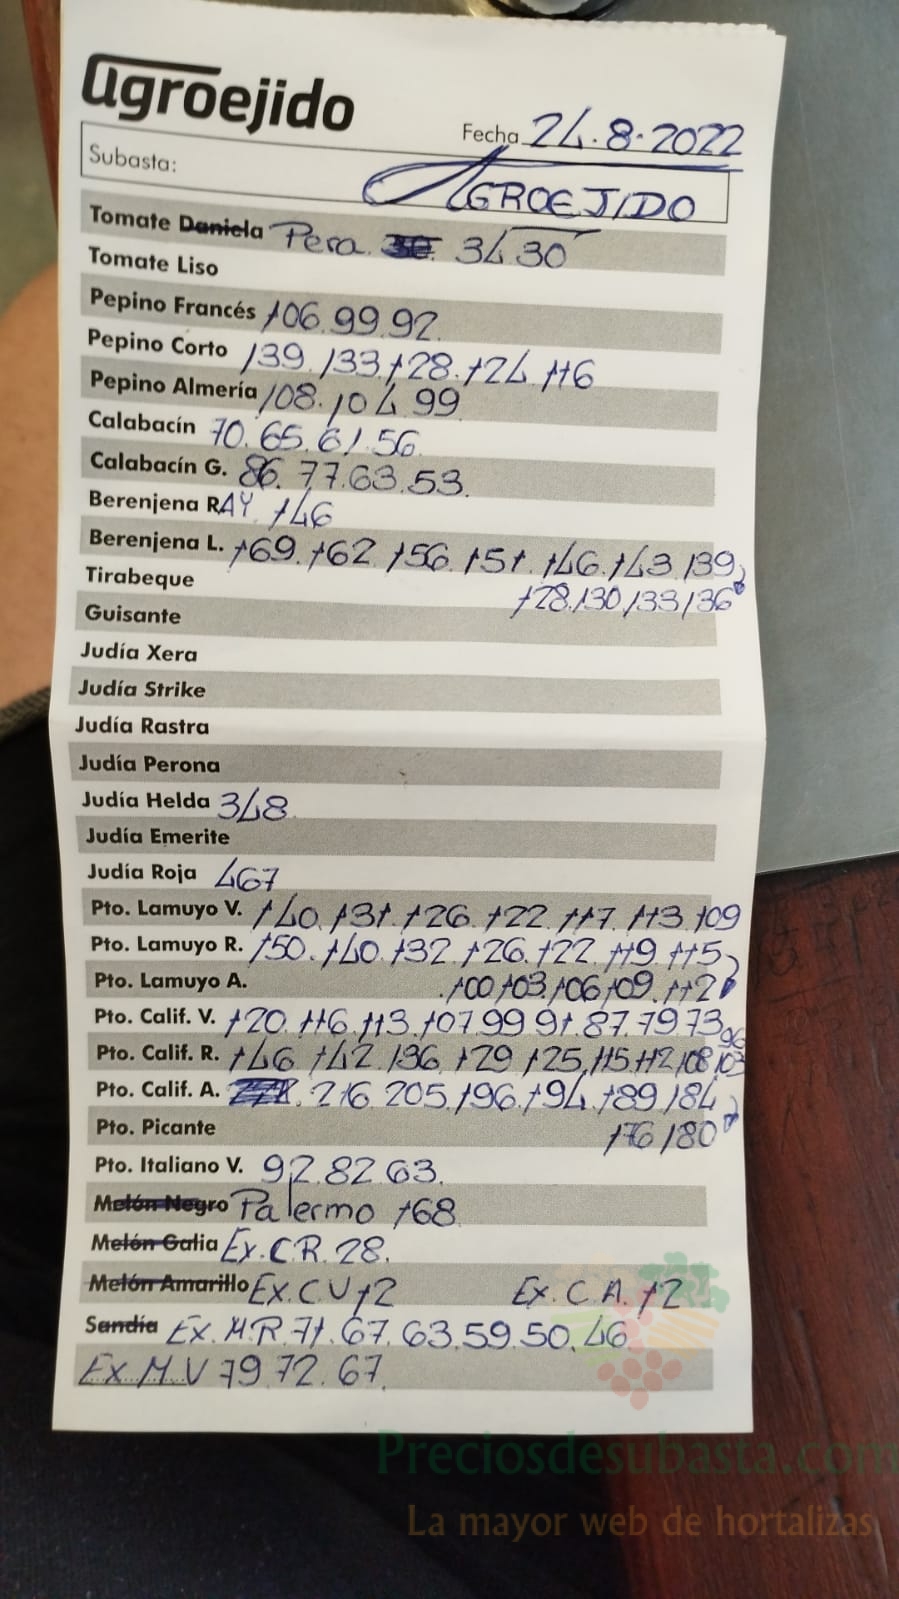 agroejido
Fecha 24.8.2022
Subasta: AGROEJIDO
Tomate Daniela Pera. 34 30
Tomate Liso
Pepino Francés 106.99.92.
Pepino Corto 139.133.128.124.116
Pepino Almería 108.104.99
Calabacín 70.65.61.56.
Calabacín G. 86.77.63.53.
Berenjena RAY 146
Berenjena L. 169.162.156.151.146.143.139
Tirabeque 128.130/133/136
Guisante
Judía Xera
Judía Strike
Judía Rastra
Judía Perona
Judía Helda 348
Judía Emerite
Judía Roja 467
Pto. Lamuyo V. 140.131.126.122.117.113.109
Pto. Lamuyo R. 150.140.132.126.122.119.115
Pto. Lamuyo A. .100/103/106/109.112
Pto. Calif. V. 120.116.113.107.99.91.87.79.73
96
Pto. Calif. R. 146 142.136.129.125.115.112/108/103
Pto. Calif. A. 216.205.196.194.189/184
Pto. Picante 176/180
Pto. Italiano V. 92.82.63.
Melón Negro Palermo 168
Melón Galia Ex.C.R.28.
Melón Amarillo Ex.C V 12 Ex.C A.12
Sandía Ex.M.R.71.67.63.59.50.46
Ex.M.V 79.72.67.
Preciosdesubasta.com
La mayor web de hortalizas